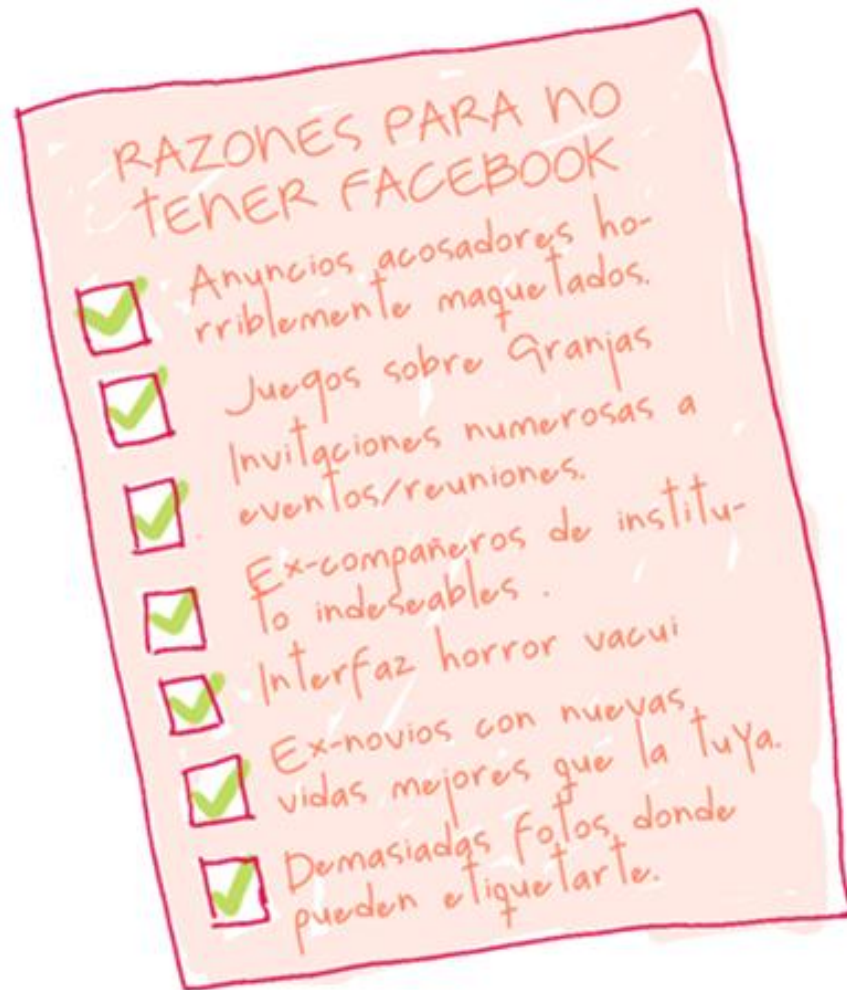 RAZONES PARA NO
TENER FACEBOOK
Anuncios acosadores ho-
rriblemente maquetados.
Juegos sobre Granjas
Invitaciones numerosas a
eventos/reuniones.
Ex-compañeros de institu-
to indeseables.
Interfaz horror vacui
Ex-novios con nuevas
vidas mejores que la tuya.
Demasiadas fotos donde
pueden etiquetarte.